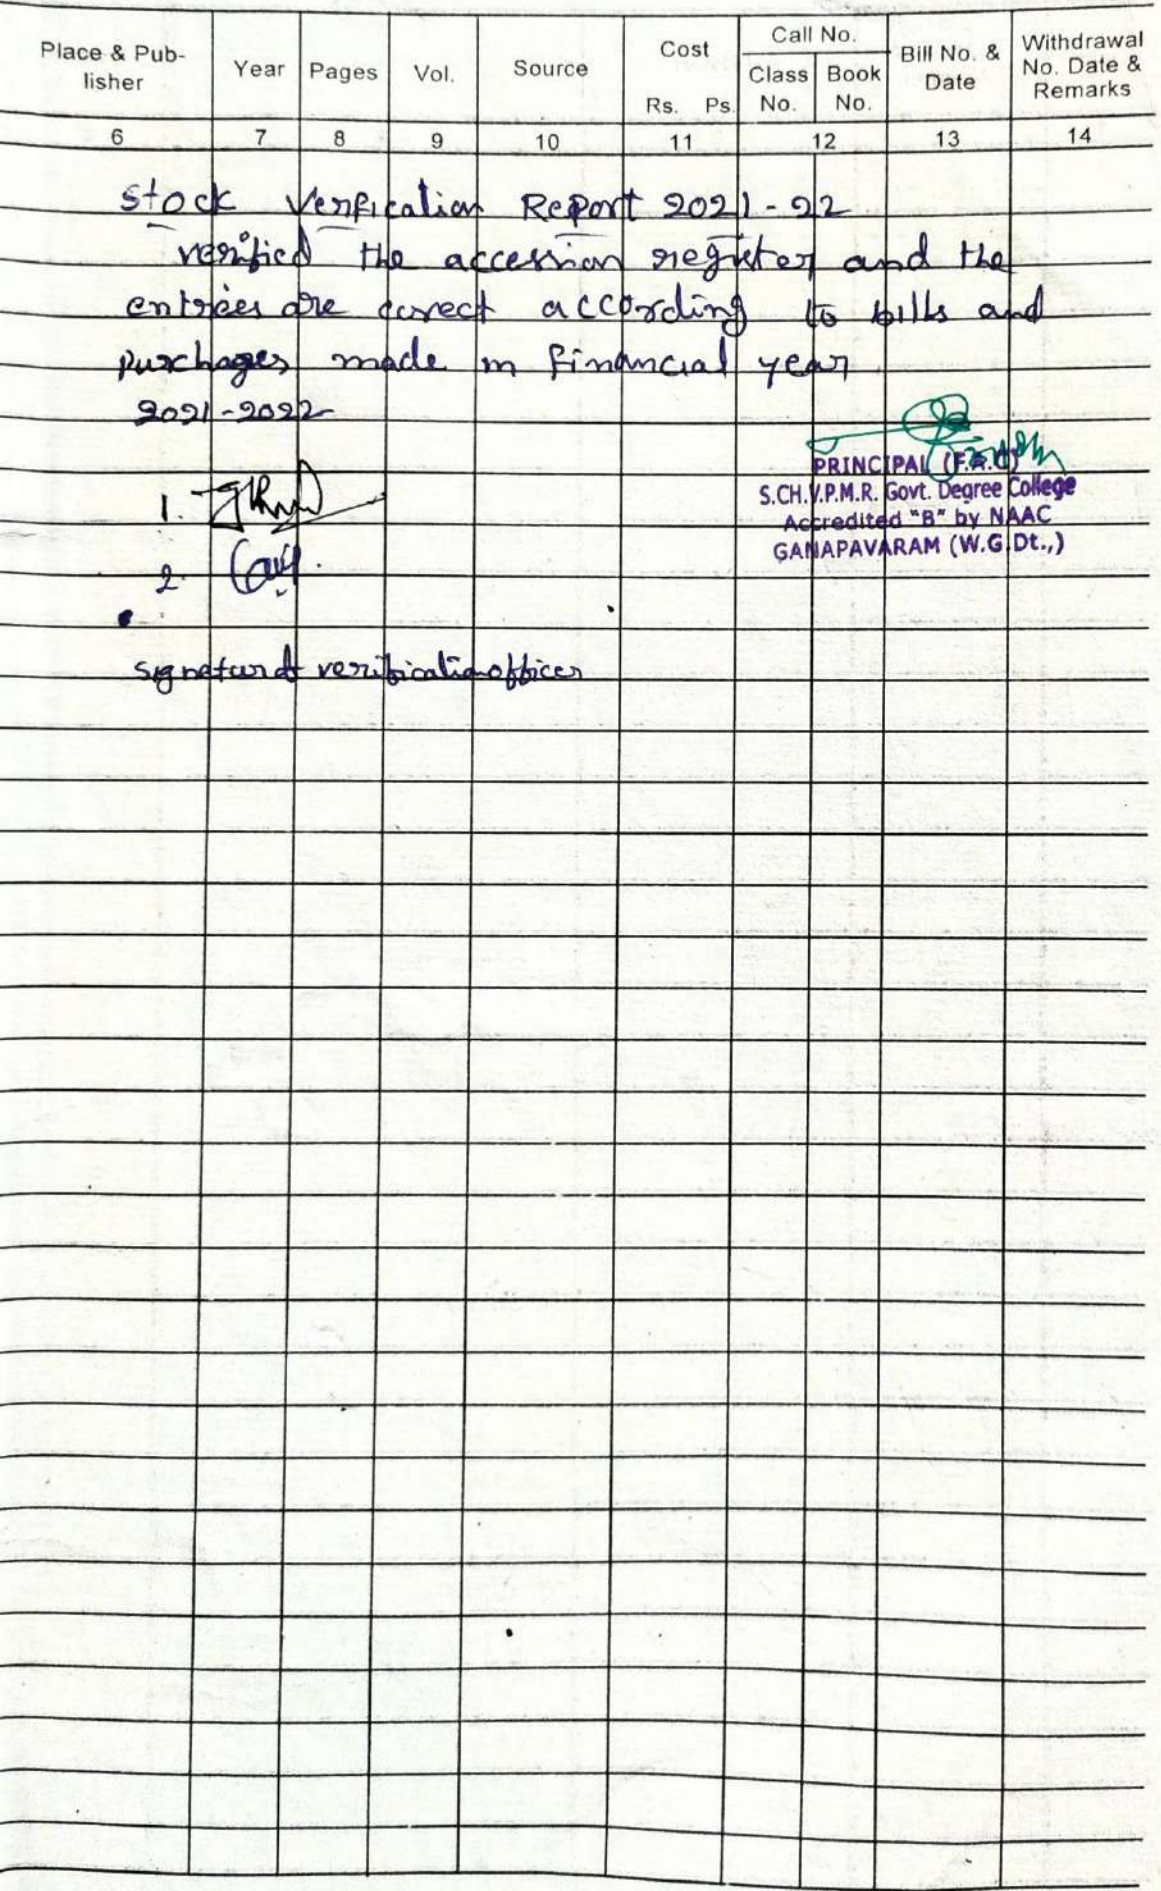 Place & Pub-
lisher
Year
Pages
Vol.
Source
Cost
Rs. Ps.
Call No.
Class
No.
Book
No.
Bill No. &
Date
Withdrawal
No. Date &
Remarks
6 7 8 9 10 11 12 13 14
Stock Verfication Report 2021-22
verified the accession register and the
entries are correct according to bills and
purchages made in financial year
2021-2022
1.
2.
PRINCIPAL (F.A.C)
S.CH.V.P.M.R. Govt. Degree College
Accredited "B" by NAAC
GANAPAVARAM (W.G.Dt.,)
signature of verification officer